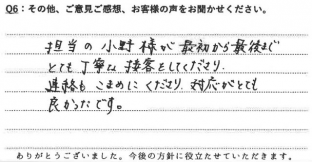 Q6：その他、ご意見ご感想、お客様の声をお聞かせください。
担当の小野様が最初から最後まで
とても丁寧な接客をしてくださり
連絡もこまめにくださり、対応がとても
良かったです。
ありがとうございました。今後の方針に役立たせていただきます。